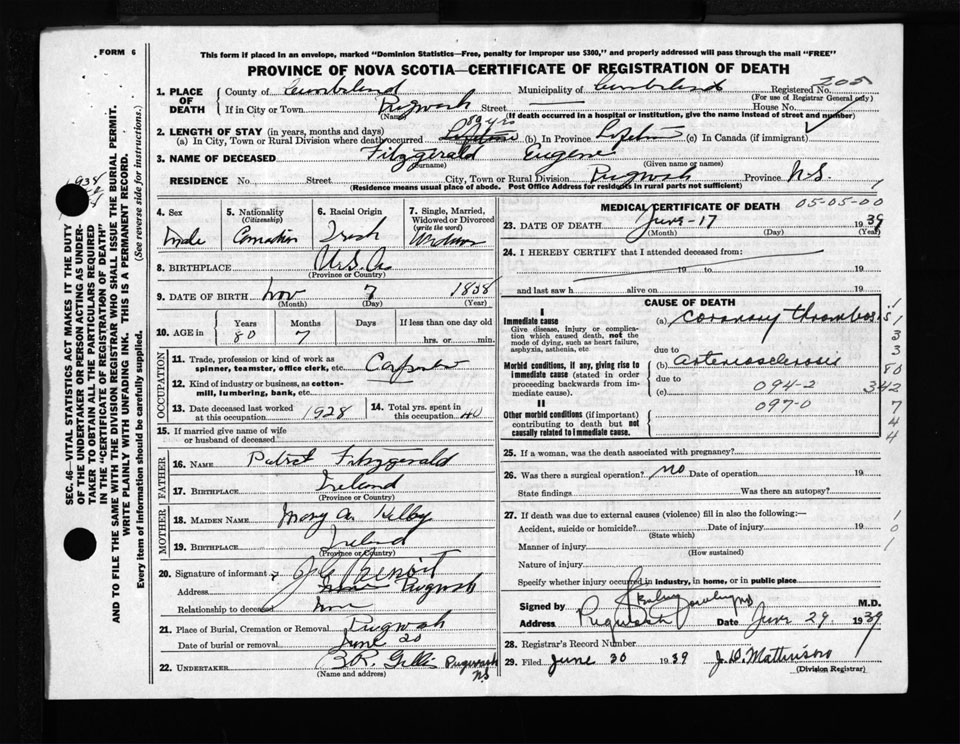 FORM 6
This form if placed in an envelope, marked "Dominion Statistics—Free, penalty for improper use $300," and properly addressed will pass through the mail "FREE"
PROVINCE OF NOVA SCOTIA—CERTIFICATE OF REGISTRATION OF DEATH
1. PLACE OF DEATH
County of Cumberland Municipality of Cumberland Registered No. 205
(For use of Registrar General only)
If in City or Town Pugwash Street House No.
(Name) (If death occurred in a hospital or institution, give the name instead of street and number)
2. LENGTH OF STAY (in years, months and days) 80 yrs
(a) In City, Town or Rural Division where death occurred Lifetime (b) In Province Lifetime (c) In Canada (if immigrant)
3. NAME OF DECEASED Fitzgerald Eugene
(Surname) (Given name or names)
RESIDENCE No. Street City, Town or Rural Division Pugwash Province N.S.
(Residence means usual place of abode. Post Office Address for residents in rural parts not sufficient)
4. Sex
male
5. Nationality (Citizenship)
Canadian
6. Racial Origin
Irish
7. Single, Married, Widowed or Divorced (write the word)
8. BIRTHPLACE U.S.A.
(Province or Country)
9. DATE OF BIRTH Nov 7 1858
(Month) (Day) (Year)
10. AGE in Years Months Days If less than one day old
80 7 hrs. or min.
OCCUPATION
11. Trade, profession or kind of work as spinner, teamster, office clerk, etc.
12. Kind of industry or business, as cotton-mill, lumbering, bank, etc.
13. Date deceased last worked at this occupation 1928
14. Total yrs. spent in this occupation 40
15. If married give name of wife or husband of deceased
FATHER
16. NAME Fitzgerald
17. BIRTHPLACE Ireland
(Province or Country)
MOTHER
18. MAIDEN NAME Mary A. Kelby
19. BIRTHPLACE Ireland
(Province or Country)
20. Signature of informant Benoit
Address Pugwash
Relationship to deceased None
21. Place of Burial, Cremation or Removal Pugwash
Date of burial or removal June 20
22. UNDERTAKER Gillis Pugwash NS
(Name and address)
MEDICAL CERTIFICATE OF DEATH 05-05-00
23. DATE OF DEATH June - 17 1939
(Month) (Day) (Year)
24. I HEREBY CERTIFY that I attended deceased from:
19 to 19
and last saw h alive on 19
CAUSE OF DEATH
I
Immediate cause (a) coronary thrombosis
Give disease, injury or complication which caused death, not the mode of dying, such as heart failure, asphyxia, asthenia, etc.
due to
Morbid conditions, if any, giving rise to immediate cause (stated in order proceeding backwards from immediate cause).
(b) arteriosclerosis
due to
094-2
(c)
II
097-0
Other morbid conditions (if important) contributing to death but not causally related to immediate cause.
1
1
3
3
80
342
7
4
4
25. If a woman, was the death associated with pregnancy?
26. Was there a surgical operation? no Date of operation 19
State findings Was there an autopsy?
27. If death was due to external causes (violence) fill in also the following:—
Accident, suicide or homicide? Date of injury 19
(State which)
Manner of injury
(How sustained)
Nature of injury
Specify whether injury occurred in industry, in home, or in public place
1
0
1
Signed by M.D.
Address Pugwash Date June 29. 1939
28. Registrar's Record Number
29. Filed June 30 1939 J. D. Mattinson
(Division Registrar)
SEC. 46—VITAL STATISTICS ACT MAKES IT THE DUTY
OF THE UNDERTAKER OR PERSON ACTING AS UNDER-
TAKER TO OBTAIN ALL THE PARTICULARS REQUIRED
IN THE "CERTIFICATE OF REGISTRATION OF DEATH"
AND TO FILE THE SAME WITH THE DIVISION REGISTRAR WHO SHALL ISSUE THE BURIAL PERMIT.
WRITE PLAINLY WITH UNFADING INK. THIS IS A PERMANENT RECORD.
Every item of information should be carefully supplied. (See reverse side for instructions.)